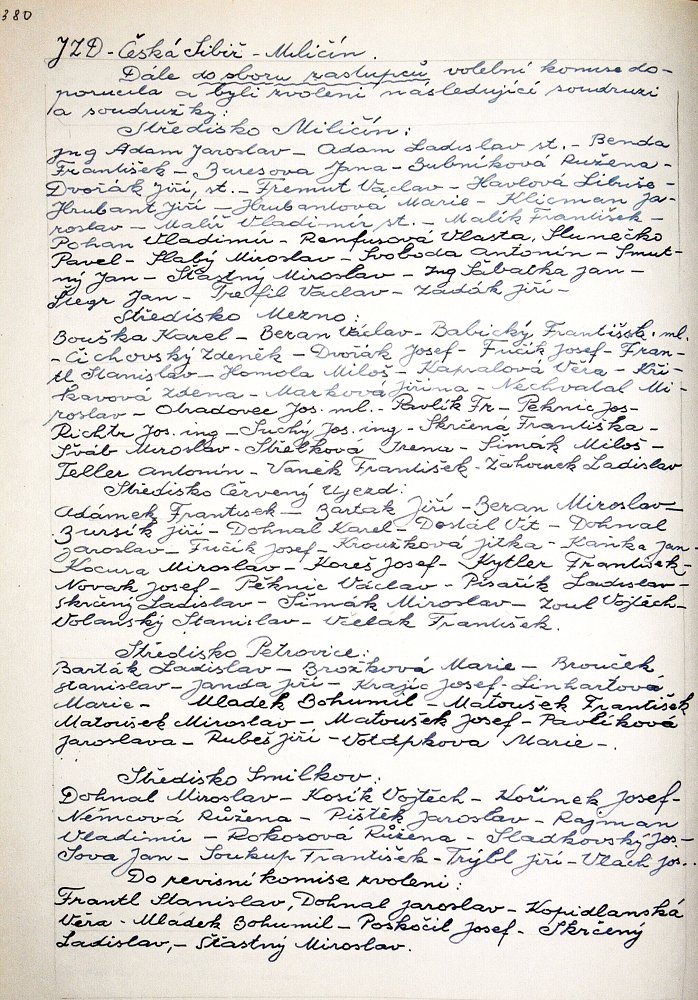 380
JZD - Česká Sibiř - Miličín.
Dále do sboru zástupců, volební komise do-
poručila a byli zvoleni následující soudruzi
a soudružky:
Středisko Miličín:
Jng Adam Jaroslav - Adam Ladislav st. - Benda
František - Buresova Jana - Bubníková Ružena -
Dvořák Jiří, st. - Fremut Václav - Havlová Libuše -
Hrubant Jiří - Hrubantová Marie - Klicman Ja-
roslav - Malíř Vladimír st. - Malík František -
Pohan Vladimír - Renfusová Vlasta, Slunečko
Pavel - Slabý Miroslav - Svoboda Antonín - Smut-
ný Jan - Šťastný Miroslav - Ing Šibatka Jan -
Štegr Jan - Trefil Václav - Zádák Jiří -
Středisko Mezno:
Bouška Karel - Beran Václav - Babický František ml.
- Čichovský Zdeněk - Dvořák Josef - Fučík Josef - Fran-
tl Stanislav - Homola Miloš - Kápralová Věra - Kři-
kavová Zdena - Marková Jiřina - Nechvatal Mi-
roslav - Obadovec Jos. ml. - Pavlík Fr - Peknic Jos -
Richtr Jos. ing - Suchý Jos. ing - Skrčená Františka -
Šváb Miroslav - Střelková Irena - Šimák Miloš -
Teller Antonín - Vaněk František - Zahourek Ladislav
Středisko Červený Ujezd:
Adámek František - Bartak Jiří - Beran Miroslav -
Bursík Jiří - Dohnal Karel - Dostál Vít - Dohnal
Jaroslav - Fučík Josef - Kroužková Jitka - Kaňka Jan -
Kocura Miroslav - Koreš Josef - Kytler František -
Novak Josef - Peknic Václav - Pisařík Ladislav
Skrčený Ladislav - Šimák Miroslav - Zoul Vojtěch -
Volanský Stanislav - Včelak František.
Středisko Petrovice:
Barták Ladislav - Brožková Marie - Brouček
Stanislav - Janda Jiří - Krajíc Josef - Linhartová
Marie - Mladek Bohumil - Matoušek František
Matoušek Miroslav - Matoušek Josef - Pavlíková
Jaroslava - Rubeš Jiří - Votápkova Marie -.
Středisko Smilkov:
Dohnal Miroslav - Kosík Vojtěch - Kořínek Josef -
Němcová Růžena - Pištěk Jaroslav - Rajman
Vladimír - Rokosová Růžena - Sladkovský Jos -
Sova Jan - Soukup František - Trýbl Jiří - Vlach Jos..
Do revisní komise zvoleni:
Frantl Stanislav, Dohnal Jaroslav - Kopidlanská
Věra - Mladek Bohumil - Poskočil Josef - Skrčený
Ladislav, - Šťastný Miroslav.